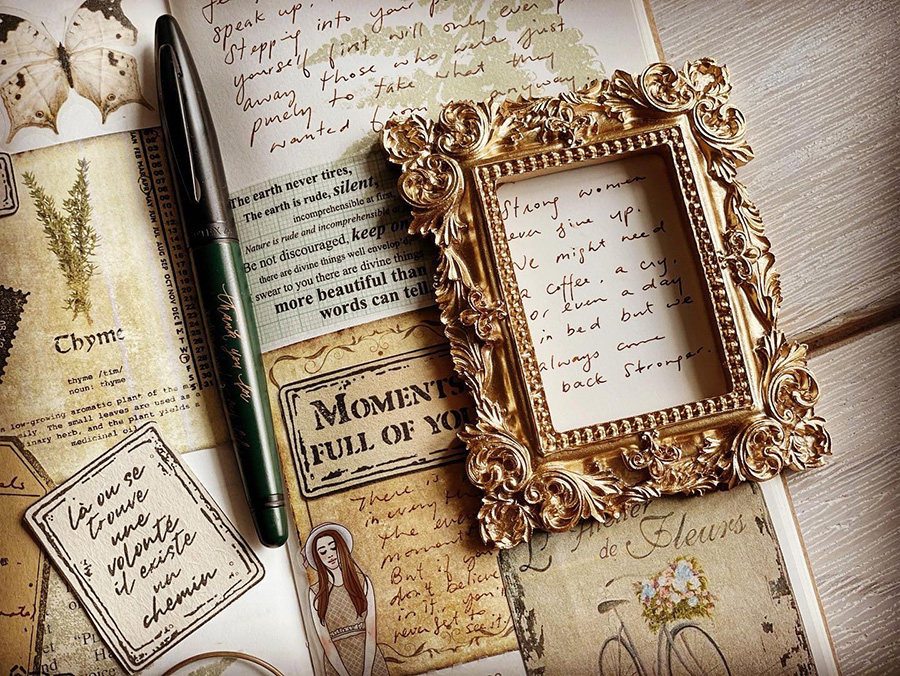 speak up.
Stepping into your
yourself first will only ever
away those who were just
purely to take what they
wanted from anyway
The earth never tires,
The earth is rude, silent,
incomprehensible at first
Nature is rude and incomprehensible
Be not discouraged, keep on
there are divine things well envelop
swear to you there are divine things
more beautiful than
words can tell.
Thyme
thyme /tim/
noun: thyme
low-growing aromatic plant of the
The small leaves are used as a
herb, and the plant yields
medicinal oil
JAN FEB MAR APR MAY JUN JUL AUG SEP OCT NOV DEC
Thank you for
MOMENTS
FULL OF YOU
There is
in every
the
moment
But if
don't believe
in it, you'll
never get to see it.
là ou se
trouve
une
volonté
il existe
un
chemin
Strong women
ever give up.
We might need
a coffee. a cry.
or even a day
in bed but we
always come
back stronger.
L'Atelier
de Fleurs